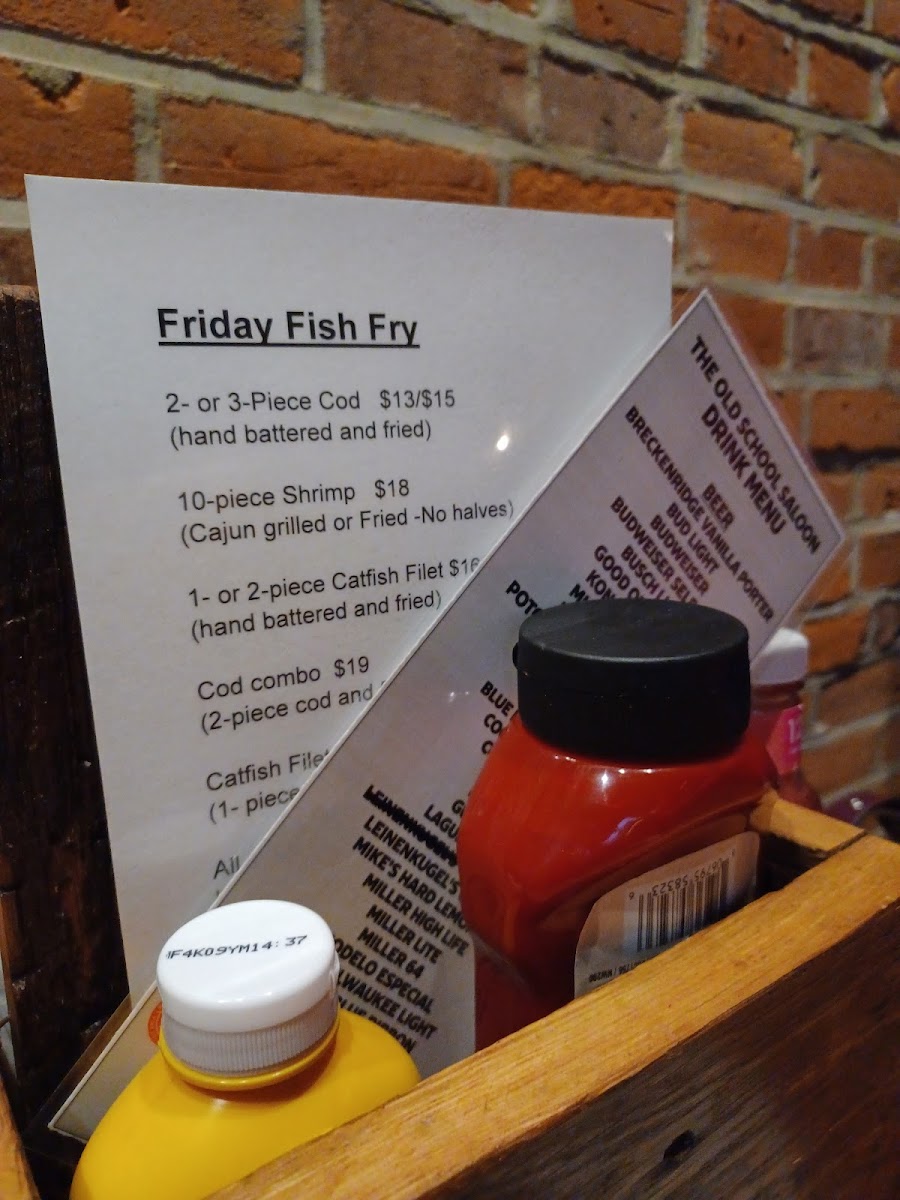 Friday Fish Fry
2- or 3-Piece Cod $13/$15
(hand battered and fried)
10-piece Shrimp $18
(Cajun grilled or Fried -No halves)
1- or 2-piece Catfish Filet $16
(hand battered and fried)
Cod combo $19
(2-piece cod and
Catfish File
(1- piece
All
THE OLD SCHOOL SALOON
DRINK MENU
BEER
BRECKENRIDGE VANILLA PORTER
BUD LIGHT
BUDWEISER
BUDWEISER SELE
BUSCH LI
GOOD O
KON
POTO
BLUE
CO
LAGU
LEINENKUGEL'S
MIKE'S HARD LEMO
MILLER HIGH LIFE
MILLER LITE
MILLER 64
ODELO ESPECIAL
LWAUKEE LIGHT
RIBBON
F4K09YM14:37
58323